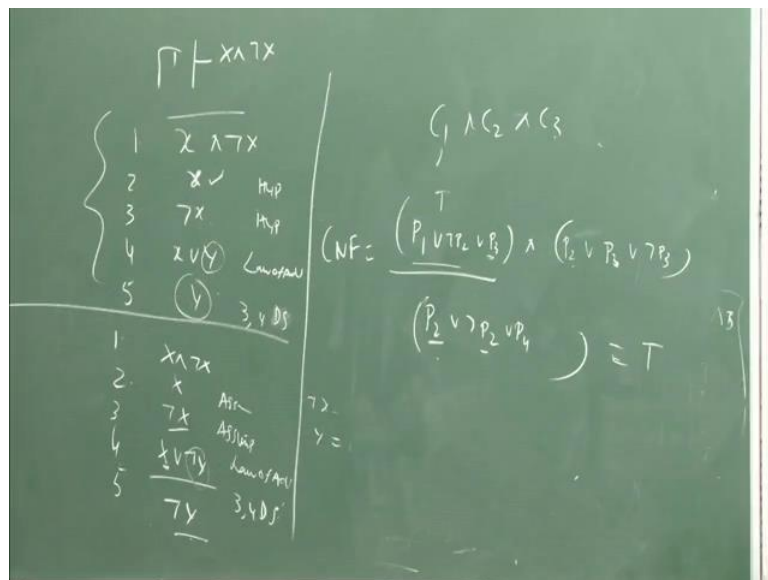 Γ ⊢ X∧¬X
1 X ∧¬X
2 X ✓ Hyp
3 ¬X Hyp
4 X∨Y Law of Add
5 Y 3,4 DS
1. X∧¬X
2. X Ass
3 ¬X Assump
4 X∨¬Y Law of Add
5 ¬Y 3,4 DS
C1 ∧ C2 ∧ C3
T
CNF = (P1 ∨ ¬P2 ∨ P3) ∧ (P2 ∨ P3 ∨ ¬P3)
(P2 ∨ ¬P2 ∨ P4 ) ≡ T
Y =